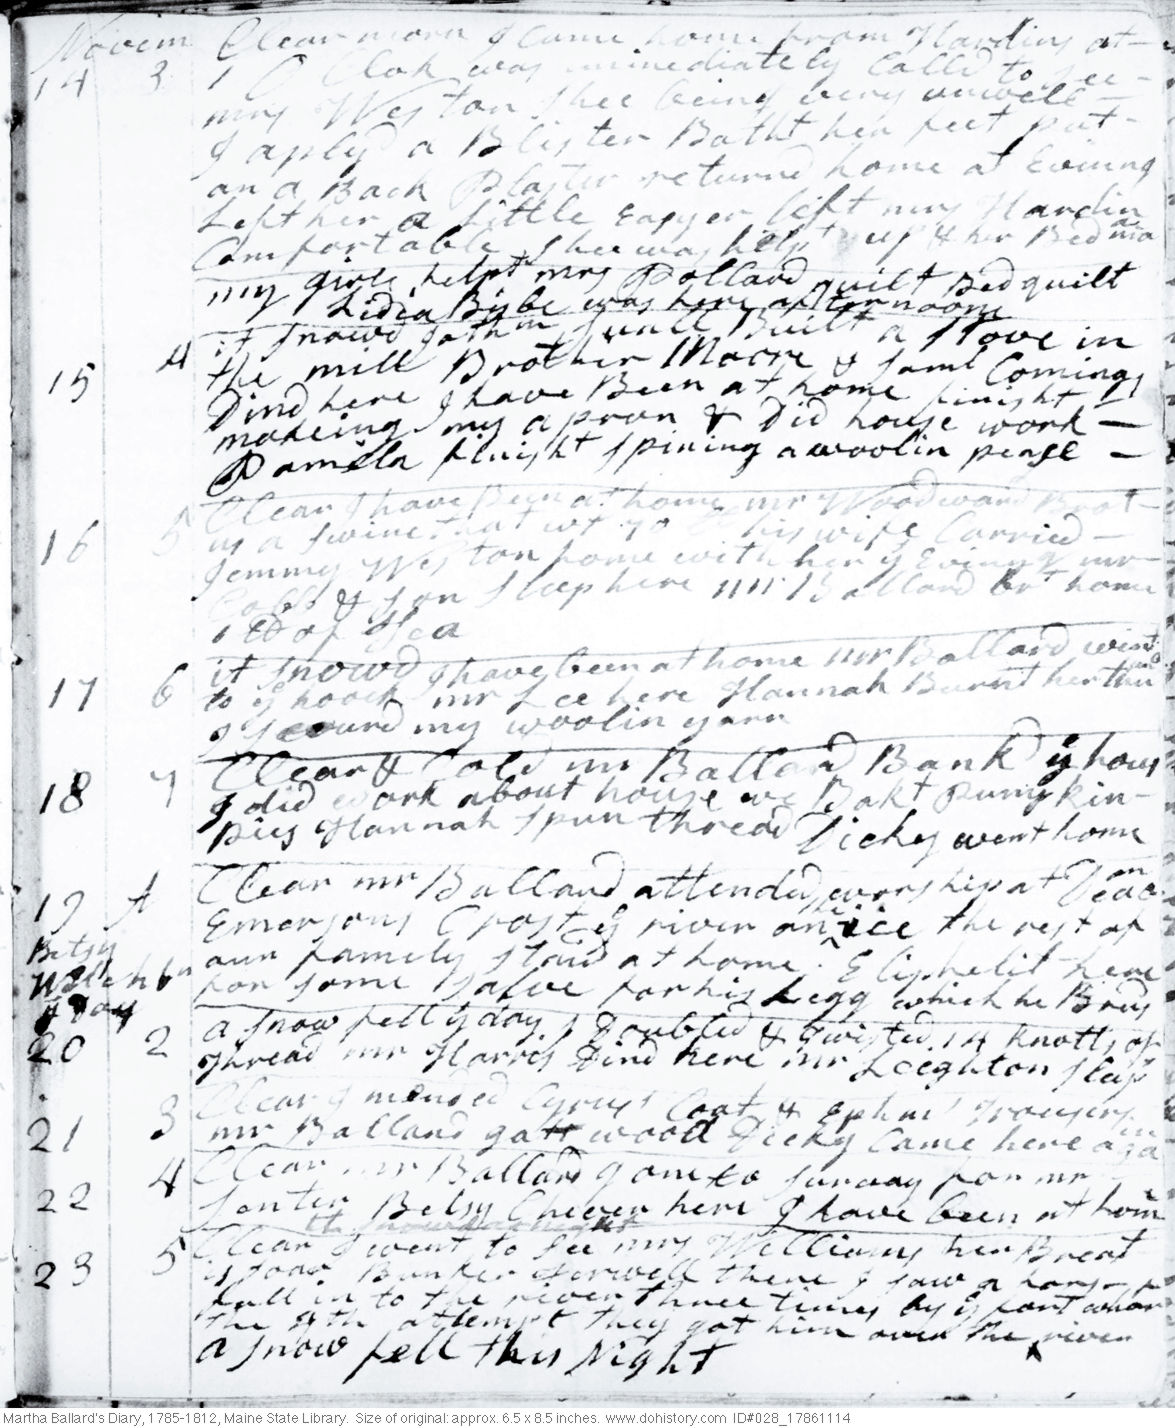 Novem Clear morn I Came home from Hardins at
14 3 1 O Clok was immediately Calld to See
mrs Weston Shee being very unwell
I aplyd a Blister Batht her feet put
on a Back Plaster returnd home at Evining
Left her a Little Easyer left mrs Hardin
Comfortable Shee was helpt up & her Bed
my girls helpt mrs Pollard quilt Bed quilt
Lidia Bisbe was here afternoon
15 4 it Snowd Jothm Sualls Built a Stove in
the mill Brother Moore & Saml Comings
Dind here I have Been at home finisht
makeing my apron & Did house work
Pamela finisht Spining a woolin pease
16 5 Clear I have Been at home mr Woodward Brot
us a Swine that wt 70 his wife Carried
Jemmy Weston home with her y Evining mr
& Son Sleep here mr Ballard brt home
1 lb of Tea
17 6 it Snowd I have been at home mr Ballard went
to y hoock mr Lee here Hannah Burnt her
I Scourd my woolin yarn
18 7 Clear & Cold mr Ballard Bank y hous
I did work about house we Bakt Pumpkin
Pies Hannah Spun thread Dicky went home
19 A Clear mr Ballard attended worship at Deacon
Emersons Crost y river on the ice the rest of
Betsy our family Staid at home. Eliphelit here
for Some Salve for his Legg which he
Day
20 2 a Snow fell y day I Doubled & twisted 14 knotts of
thread mr Harris Dind here mr Leighton Sleep
21 3 Clear I mended Cyrus' Coat & Ephms Trousers
mr Ballard gatt wood Dicky Came here again
22 4 Clear mr Ballard gone to Survay for mr
Senter Betsy Chever here I have been at home
it Snowd at night
23 5 Clear I went to See mrs Williams her Breast
is Soar Bunker Farwell there I Saw a hors
fall in to the river three times by y fort whorf
the 4th attempt they got him over the river
a Snow fell this Night
Martha Ballard's Diary, 1785-1812, Maine State Library. Size of original: approx. 6.5 x 8.5 inches. www.dohistory.com ID#028_17861114